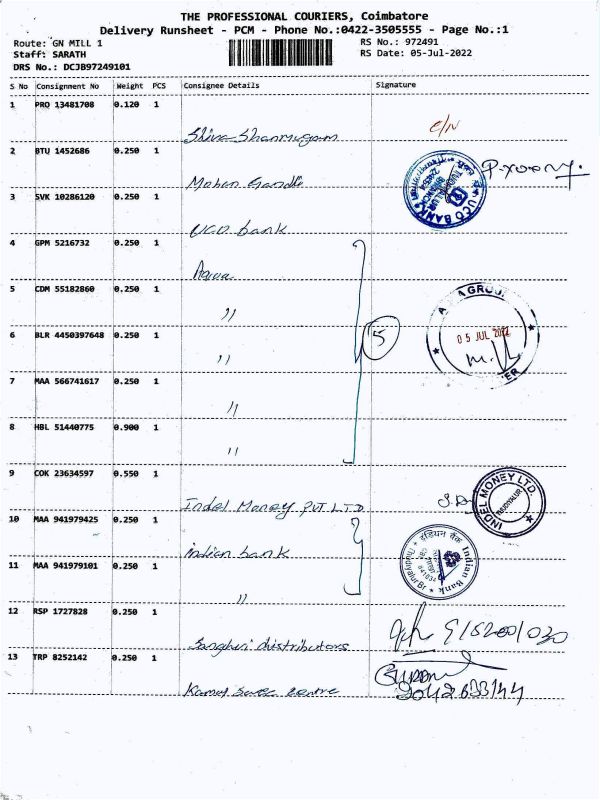 THE PROFESSIONAL COURIERS, Coimbatore
Delivery Runsheet - PCM - Phone No.:0422-3505555 - Page No.:1
Route: GN MILL 1
RS No.: 972491
Staff: SARATH
RS Date: 05-Jul-2022
DRS No.: DCJB97249101
S No Consignment No Weight PCS Consignee Details Signature
1 PRO 13481708 0.120 1
Shiva Shanmugam
2 BTU 1452686 0.250 1
Mohan Gandhi
3 SVK 10286120 0.250 1
UCO BANK
UCO bank
4 GPM 5216732 0.250 1
5 CDM 55182860 0.250 1
"
GROUP
05 JUL 2022
6 BLR 4450397648 0.250 1
5
"
7 MAA 566741617 0.250 1
"
8 HBL 51440775 0.900 1
"
9 COK 23634597 0.550 1
Indel Money PVT LTD
INDEL MONEY LTD
10 MAA 941979425 0.250 1
indian bank
इंडियन बैंक
Indian Bank
11 MAA 941979101 0.250 1
"
12 RSP 1727828 0.250 1
distributors
13 TRP 8252142 0.250 1
centre